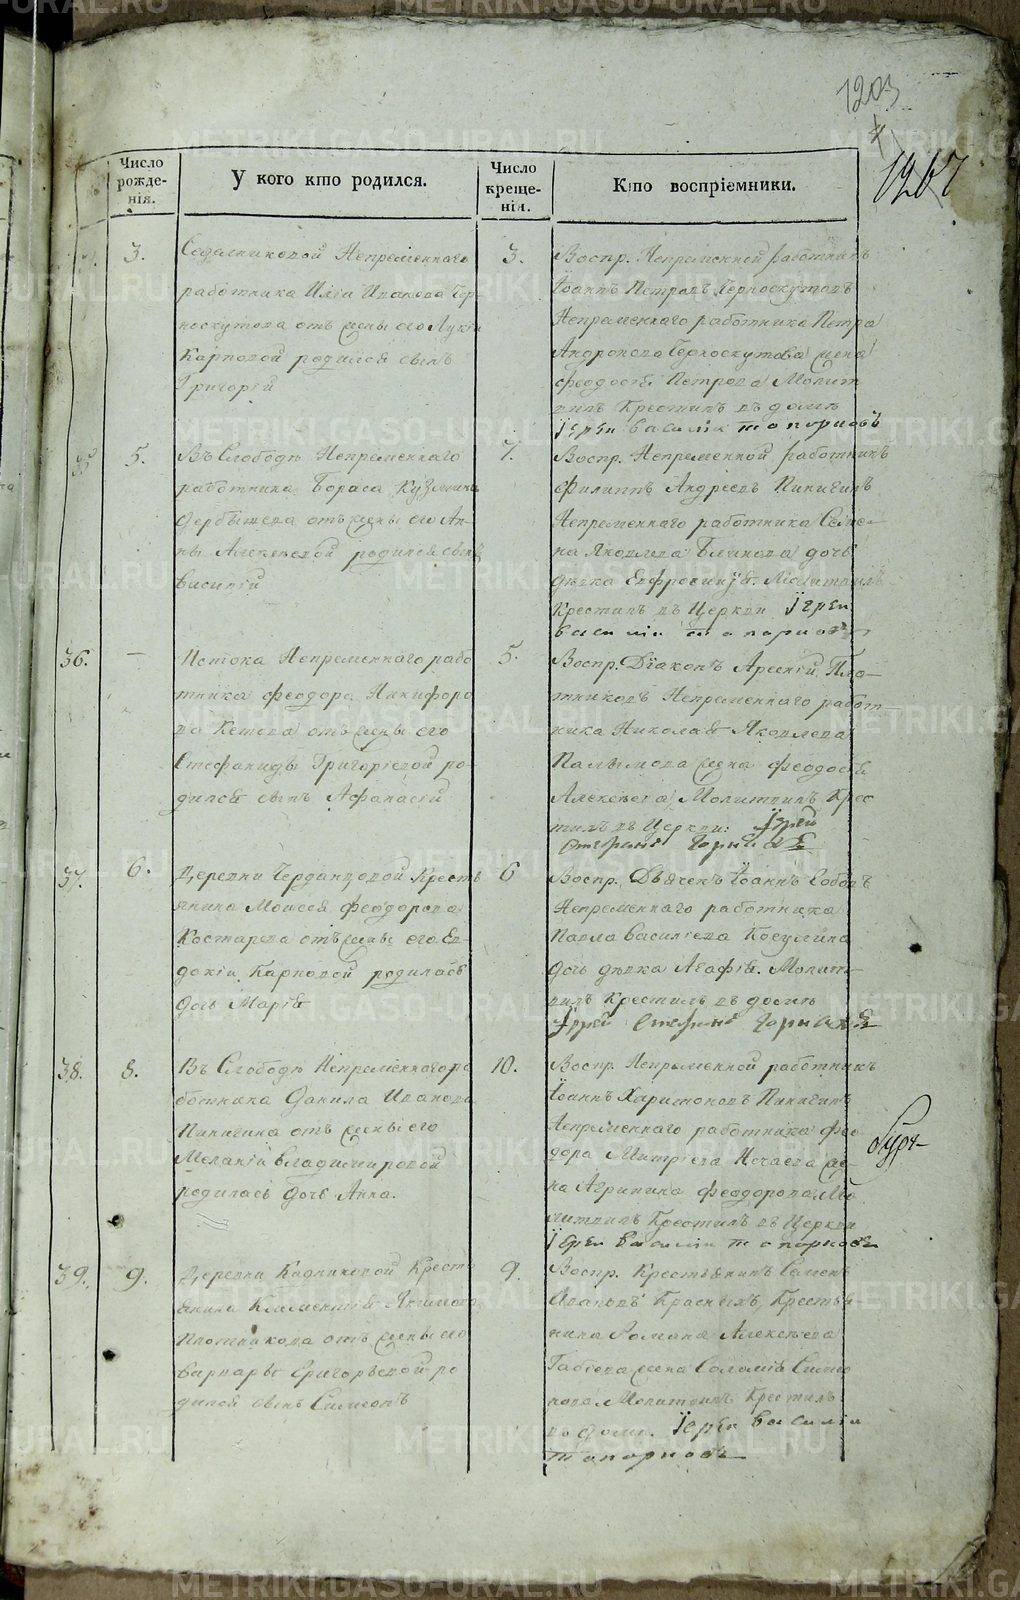 1203
1267
Число рожде-нія.
У кого кто родился.
Число креще-нія.
Кто воспріемники.
3.
Садачиковой Непременнаго
работника Иліи Иванова Чер-
носкутова отъ жены его Лукіи
Карповой родился сынъ
Григорій
3.
Воспр. Непременной работникъ
Іоаннъ Петровъ Черноскутовъ
Непременнаго работника Петра
Андронова Черноскутова жена
Феодосья Петрова Молит
вилъ Крестилъ въ доме
Іерей василіи топорковъ
35
5.
Въ Слободе Непременнаго
работника Бориса Кузмина
Дербышева отъ жены его Ан-
ны Алексеевой родился сынъ
Василій
7.
Воспр. Непременной работникъ
Филиппъ Андреевъ Пинигинъ
Непременнаго работника Семе-
на Яковлева Блинова дочь
девка Евфросинія. Молитвилъ
Крестилъ въ Церкви Іереи
василіи топорковъ
36.
—
Истока Непременнаго рабо
тника Феодора Никифоро
ва Кетова отъ жены его
Стефаниды Григорьевой ро-
дился сынъ Афанасій
5.
Воспр. Діаконъ Арсеній Пло-
тниковъ Непременнаго работ-
ника Николая Яковлева
Палымова жена Феодосья
Алексеева, Молитвилъ Крес
тилъ въ Церкви: Іерей
Стефанъ
37.
6.
Деревни Черданцовой Кресть
янина Моисея Феодорова
Костарева отъ жены его Ев-
докіи Карповой родилась
дочь Марія
6
Воспр. Дьячекъ Іоаннъ Соболъ
Непременнаго работника
Павла Василіева Косулина
дочь девка Агафія. Молит-
вилъ Крестилъ въ доме
Іерей Стефанъ
38.
8.
Въ Слободе Непременнаго ра
ботника Данила Иванова
Пинигина отъ жены его
Меланіи Владимировой
родилась дочь Анна.
10.
Воспр. Непременной работникъ
Іоаннъ Харитоновъ Пинигинъ
Непременнаго работника Фео
дора Митріева Нечаева же-
на Агрипина Феодорова Мо
литвилъ Крестилъ въ Церкви
Іереи Василіи топорковъ
39.
9.
Деревни Кадниковой Кресть
янина Климентія Акимова
Плотникова отъ жены его
Варвары Григорьевой ро
дился сынъ Симеонъ
9.
Воспр. Крестьянинъ Семенъ
Ивановъ Красныхъ, Крестья
нина Романа Алексеева
Габіева жена Соломія Симео
нова Молитвилъ Крестилъ
въ доме. Іереи Василіи
топорковъ
METRIKI.GASO-URAL.RU